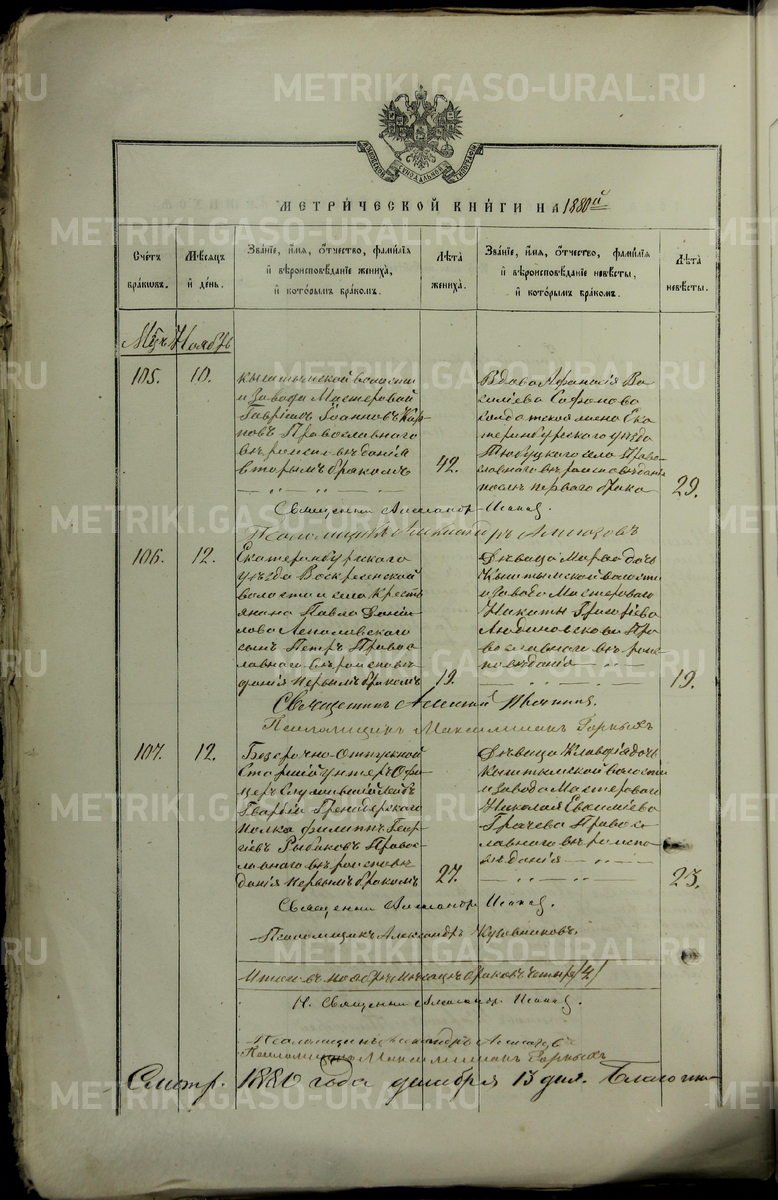 METRIKI.GASO-URAL.RU
МОСКОВСКОЙ СѴНОДАЛЬНОЙ ТИПОГРАФІИ
МЕТРИ́ЧЕСКОЙ КНИ́ГИ НА 1880й
Счетъ бра́ковъ.
Мѣсяцъ и҆ де́нь.
Зва́нїе, и҆́мя, ѻ҆́тчество, фами́лїя и҆ вѣроисповѣ́данїе жениха̀, и҆ кото́рымъ бра́комъ.
Лѣ́та жениха̀.
Зва́нїе, и҆́мя, ѻ҆́тчество, фами́лїя и҆ вѣроисповѣ́данїе невѣ́сты, и҆ кото́рымъ бра́комъ.
Лѣ́та невѣ́сты.
Мцъ Ноябрь
105. 10.
Кыштымской волости
и Завода Мастеровой
Гавріилъ Іоанновъ Кар
повъ Православнаго
вѣроисповѣданія
вторымъ бракомъ
42.
Вдова Афанасія Ва
силіева Сафонова
солдатская жена Ека
теринбургскаго уѣзда
Тюбукскаго села Право
славнаго вѣроисповѣданія
послѣ перваго брака
29.
Священникъ Александръ
Псаломщикъ Александръ
106. 12.
Екатеринбургскаго
уѣзда Воскресенской
волости и села Кресть
янина Павла Даніи
лова
сынъ Петръ Право
славнаго вѣроисповѣ
данія первымъ бракомъ
19.
Дѣвица Марѳа дочь
Кыштымской волости
и Завода Мастероваго
Никиты Григорьева
Пра
вославнаго вѣроис
повѣданія
19.
Священникъ Алексій
Псаломщикъ Максимиліанъ Горныхъ
107. 12.
Безсрочно-Отпускной
Старшій унтеръ Офи
церъ Служившій Лейбъ
Гвардіи Гренадерскаго
Полка Филиппъ Геор
гіевъ Рыбаковъ Право
славнаго вѣроисповѣ
данія первымъ бракомъ
27.
Дѣвица Клавдія дочь
Кыштымской волости
и Завода Мастероваго
Николая Евѳиміева
Грачева Право
славнаго вѣроиспо
вѣданія
23.
Священникъ Александръ
Псаломщикъ Александръ
Итого въ ноябрѣ мѣсяцѣ браковъ четыре /4/
Священникъ Александръ
Псаломщикъ Александръ
Псаломщикъ Максимиліанъ Горныхъ
Смотр. 1880 года декабря 13 дня. Благочин